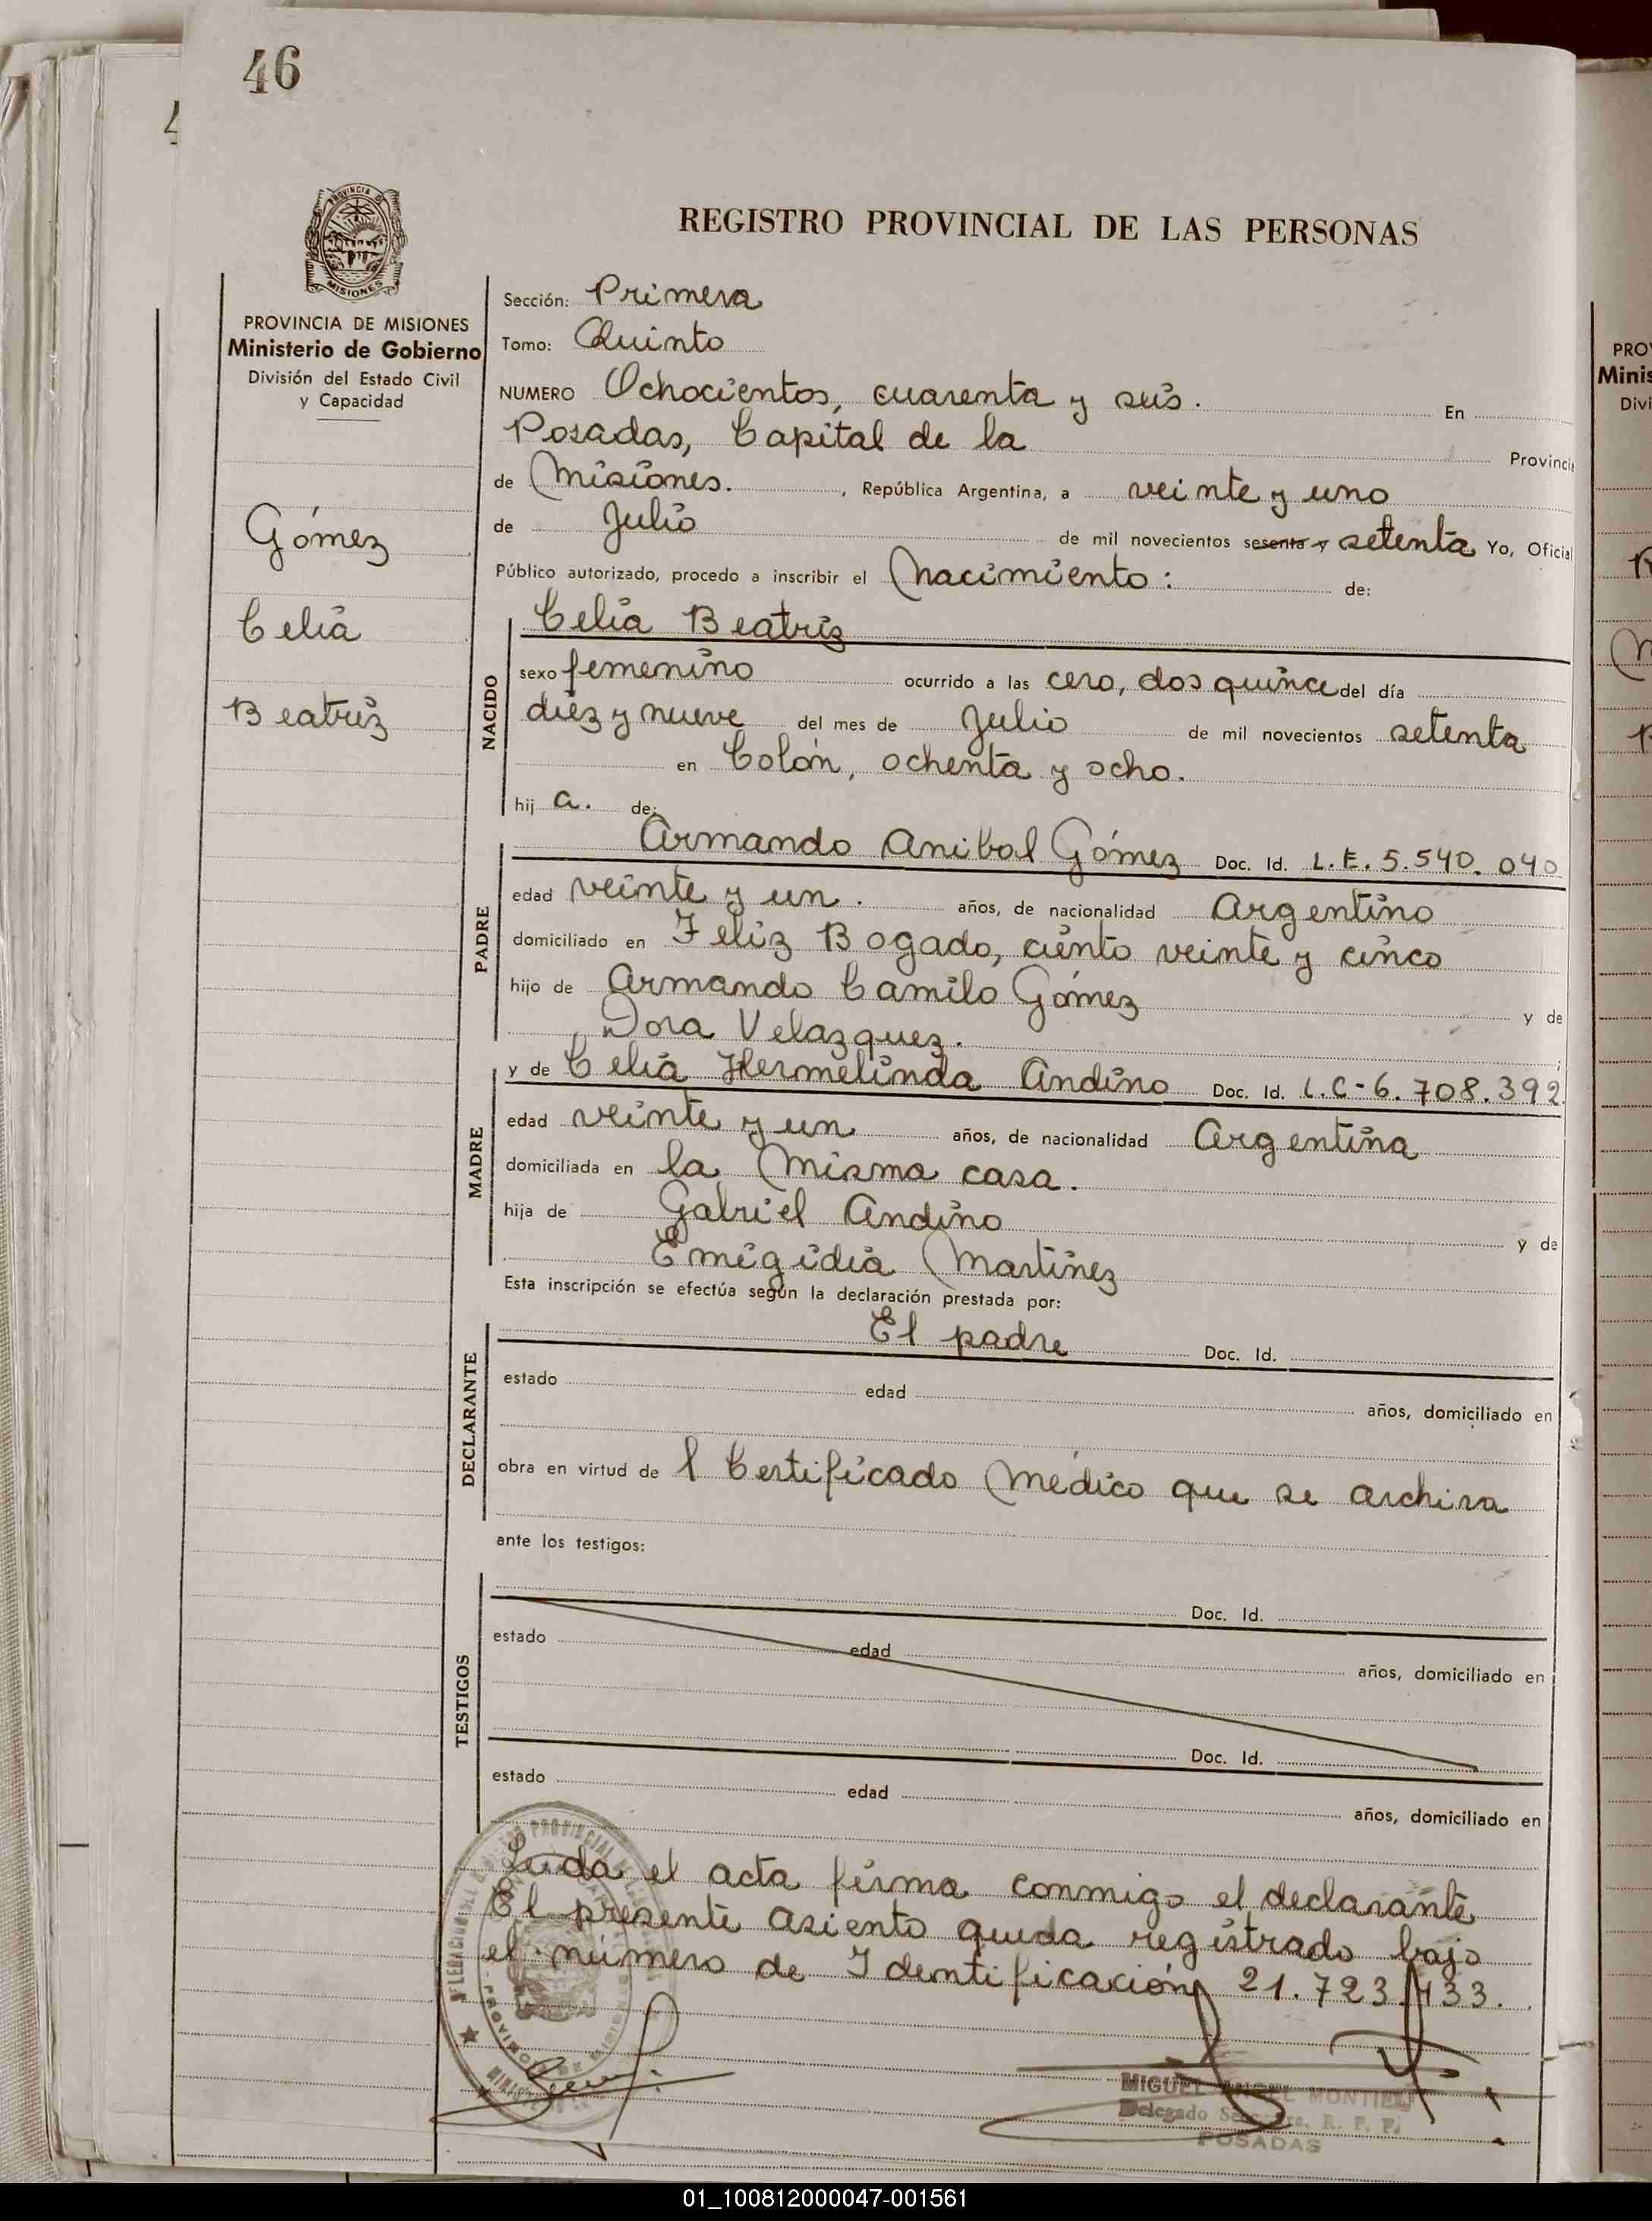 46
REGISTRO PROVINCIAL DE LAS PERSONAS
MISIONES
PROVINCIA DE MISIONES
Ministerio de Gobierno
División del Estado Civil
y Capacidad
Gómez
Celia
Beatriz
Sección: Primera
Tomo: Quinto
NUMERO Ochocientos, cuarenta y seis. En
Posadas, Capital de la Provincia
de Misiones. , República Argentina, a veinte y uno
de Julio de mil novecientos sesenta y setenta Yo, Oficial
Público autorizado, procedo a inscribir el Nacimiento: de:
NACIDO
Celia Beatriz
sexo femenino ocurrido a las cero, dos quince del día
diez y nueve del mes de Julio de mil novecientos setenta
en Colón, ochenta y ocho.
hij a. de:
PADRE
Armando Anibal Gómez Doc. Id. L.E. 5.540.040
edad veinte y un. años, de nacionalidad Argentino
domiciliado en Feliz Bogado, ciento veinte y cinco
hijo de Armando Camilo Gómez y de
Dora Velazquez.
MADRE
y de Celia Hermelinda Andino Doc. Id. L.C-6.708.392
edad veinte y un años, de nacionalidad Argentina
domiciliada en la Misma casa.
hija de Gabriel Andino y de
Emigidia Martinez
Esta inscripción se efectúa según la declaración prestada por:
DECLARANTE
El padre Doc. Id.
estado edad años, domiciliado en
obra en virtud de l Certificado Médico que se archiva
ante los testigos:
TESTIGOS
Doc. Id.
estado edad años, domiciliado en
Doc. Id.
estado edad años, domiciliado en
Leida el acta firma conmigo el declarante
El presente asiento queda registrado bajo
el número de Identificación 21.723.433.
MIGUEL ANGEL MONTIEL
Delegado R. P. P.
POSADAS
PRO
Minis
Divi
01_100812000047-001561